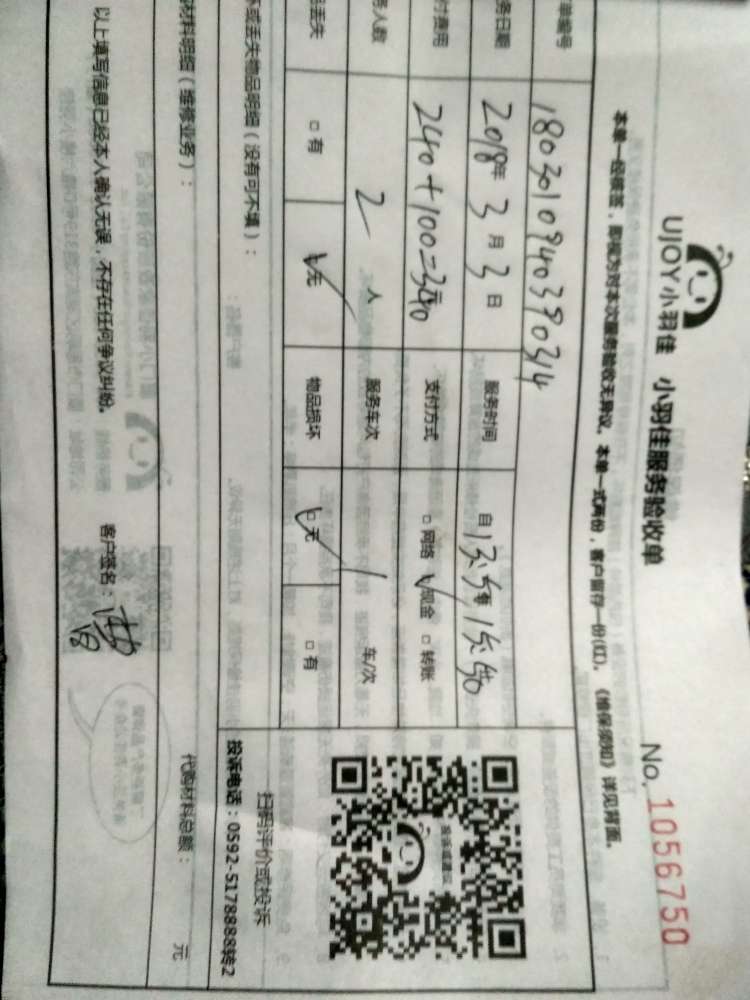 UJOY小羽佳 小羽佳服务验收单
No. 1056750
本单一经核签，即视为对本次服务验收无异议。本单一式两份，客户留存一份(红)。《维保须知》详见背面。
单编号 1803010940390314
务日期 2018年3月3日 服务时间 自
付费用 240+100=340元 支付方式 □网络 ☑现金 □转账
务人数 2人 服务车次 1车/次
丢失 □有 ☑无 物品损坏 ☑无 □有
投诉或建议
扫码评价或投诉
投诉电话：0592-5178888转2
坏或丢失物品明细（没有可不填）：
材料明细（维修业务）：
代购材料总额： 元
以上填写信息已经本人确认无误，不存在任何争议纠纷。 客户签名：